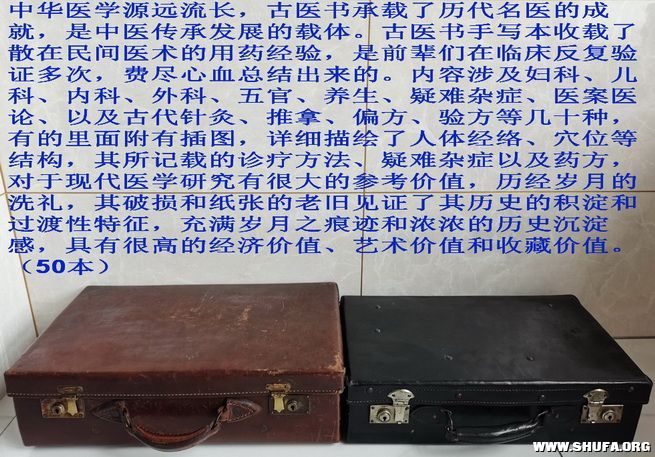 中华医学源远流长，古医书承载了历代名医的成
就，是中医传承发展的载体。古医书手写本收载了
散在民间医术的用药经验，是前辈们在临床反复验
证多次，费尽心血总结出来的。内容涉及妇科、儿
科、内科、外科、五官、养生、疑难杂症、医案医
论、以及古代针灸、推拿、偏方、验方等几十种，
有的里面附有插图，详细描绘了人体经络、穴位等
结构，其所记载的诊疗方法、疑难杂症以及药方，
对于现代医学研究有很大的参考价值，历经岁月的
洗礼，其破损和纸张的老旧见证了其历史的积淀和
过渡性特征，充满岁月之痕迹和浓浓的历史沉淀
感，具有很高的经济价值、艺术价值和收藏价值。
（50本）
WWW.SHUFA.ORG